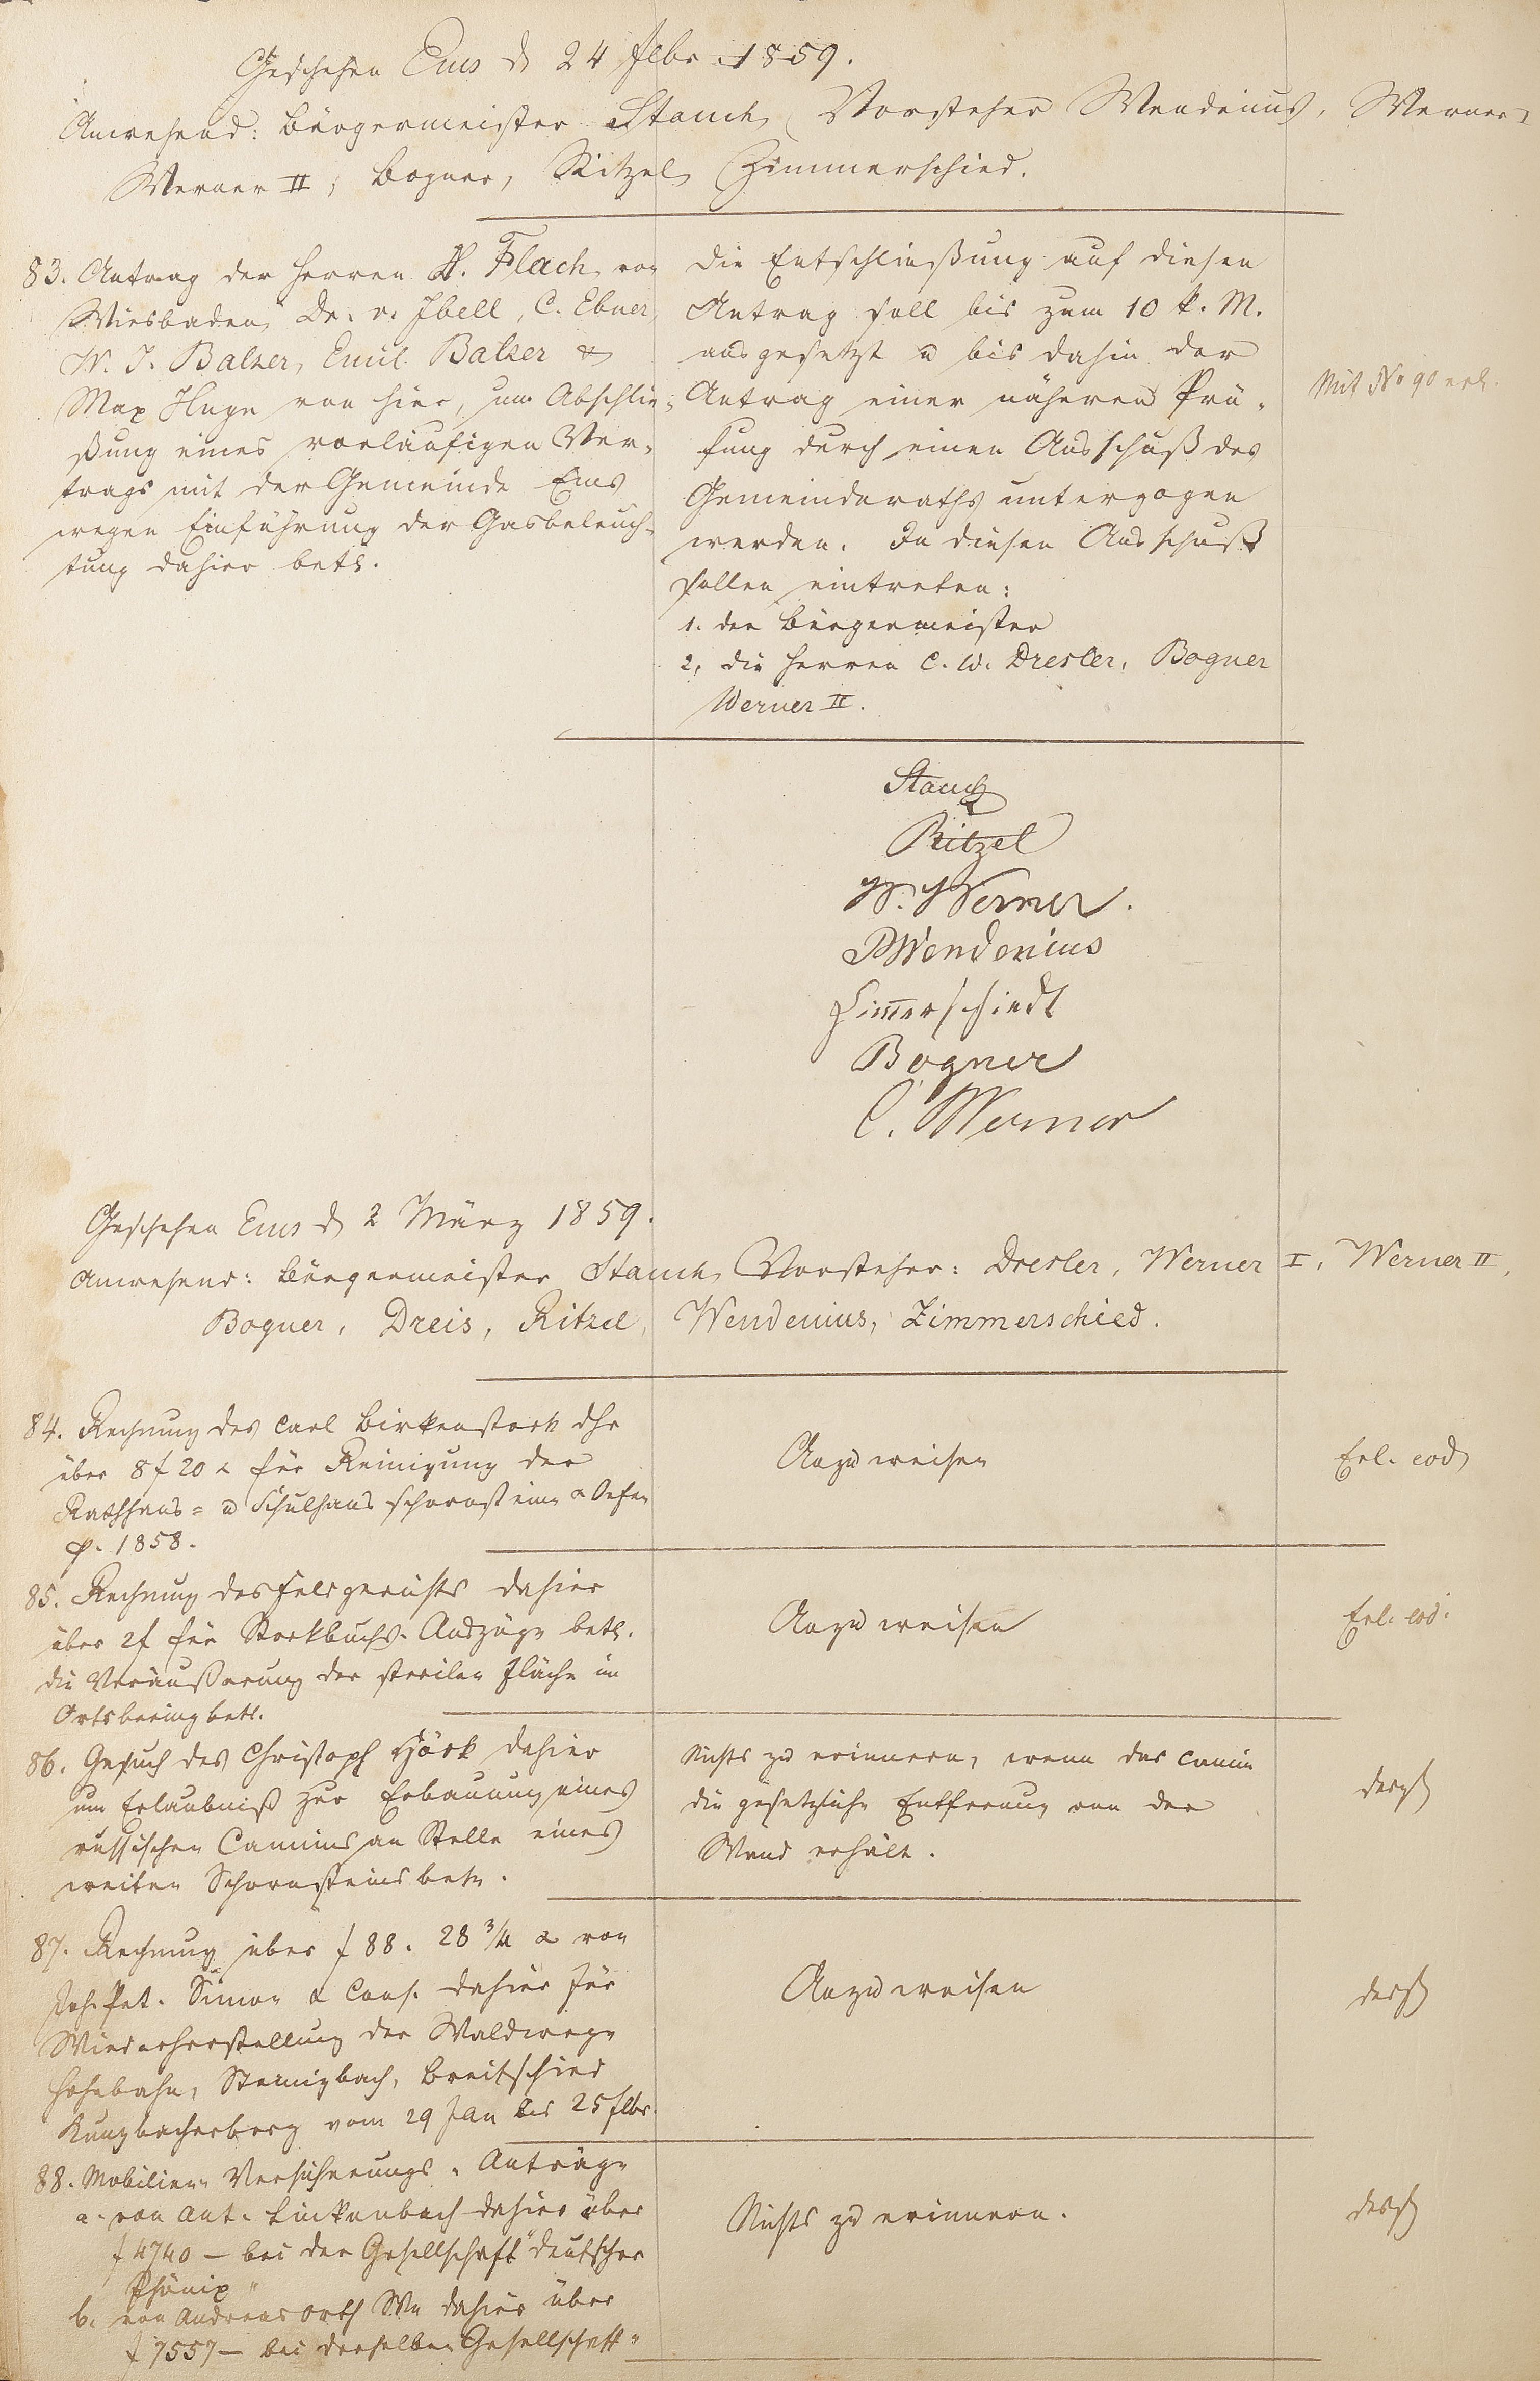 Geschehen Ems d 24 Febr 1859.
Anwesend: Bürgermeister Stauch, Vorsteher Wendenius, Werner I
Werner II, Bogner, Ritzel, Zimmerschied.
83. Antrag der Herren H. Flach, von
Wiesbaden, Dr. v. Ibell, C. Ebner,
W. J. Balzer, Emil Balzer &
Max Huyn von hier, um Abschlie-
ßung eines vorläufigen Ver-
trags mit der Gemeinde Ems
wegen Einführung der Gasbeleuch-
tung dahier betr.
Die Entschließung auf diesen
Antrag soll bis zum 10 k. M.
ausgesetzt u bis dahin der
Antrag einer näheren Prü-
fung durch einen Ausschuß des
Gemeinderaths unterzogen
werden. In diesen Ausschuß
sollen eintreten:
1. der Bürgermeister
2, die Herren C. W. Dresler, Bogner
Werner II.
Mit No 90 erl.
Stauch
Ritzel
W. Werner.
Wendenius
Zimerschiedt
Bogner
C. Werner
Geschehen Ems d 2 März 1859.
Anwesend: Bürgermeister Stauch, Vorsteher: Dresler, Werner I, Werner II,
Bogner, Dreis, Ritzel, Wendenius, Zimmerschied.
84. Rechnung des Carl Birkenstock dhr
über 8 f 20 x für Reinigung der
Rathhaus- u Schulhausschornsteine & Oefen
p. 1858.
Anzuweisen
Erl. eod
85. Rechnung des Feldgerichts dahier
über 2f für Stockbuchs-Auszüge betr.
die Veräußerung der sterilen Fläche im
Ortsbering betr.
Anzuweisen
Erl. eod.
86. Gesuch des Christoph Höck dahier
um Erlaubniß zur Erbauung eines
russischen Camins an Stelle eines
weiten Schornsteins betr.
Nichts zu erinnern, wenn das Camin
die gesetzliche Entfernung von der
Wand erhält.
desgl
87. Rechnung über f 88. 28 3/4 x von
Joh. Pet. Simon & Cons. dahier für
Wiederherstellung der Waldwege
Hohebahn, Sternigbach, Breitschied
Kunzbacherberg vom 29 Jan bis 25 Febr.
Anzuweisen
desgl
88. Mobilien-Versicherungs-Anträge
a. von Ant. Linkenbach dahier über
f 4740 — bei der Gesellschaft "deutscher
Phönix"
b. von Andreas Orth We dahier über
f 7557 — bei derselben Gesellschaft"
Nichts zu erinnern.
desgl